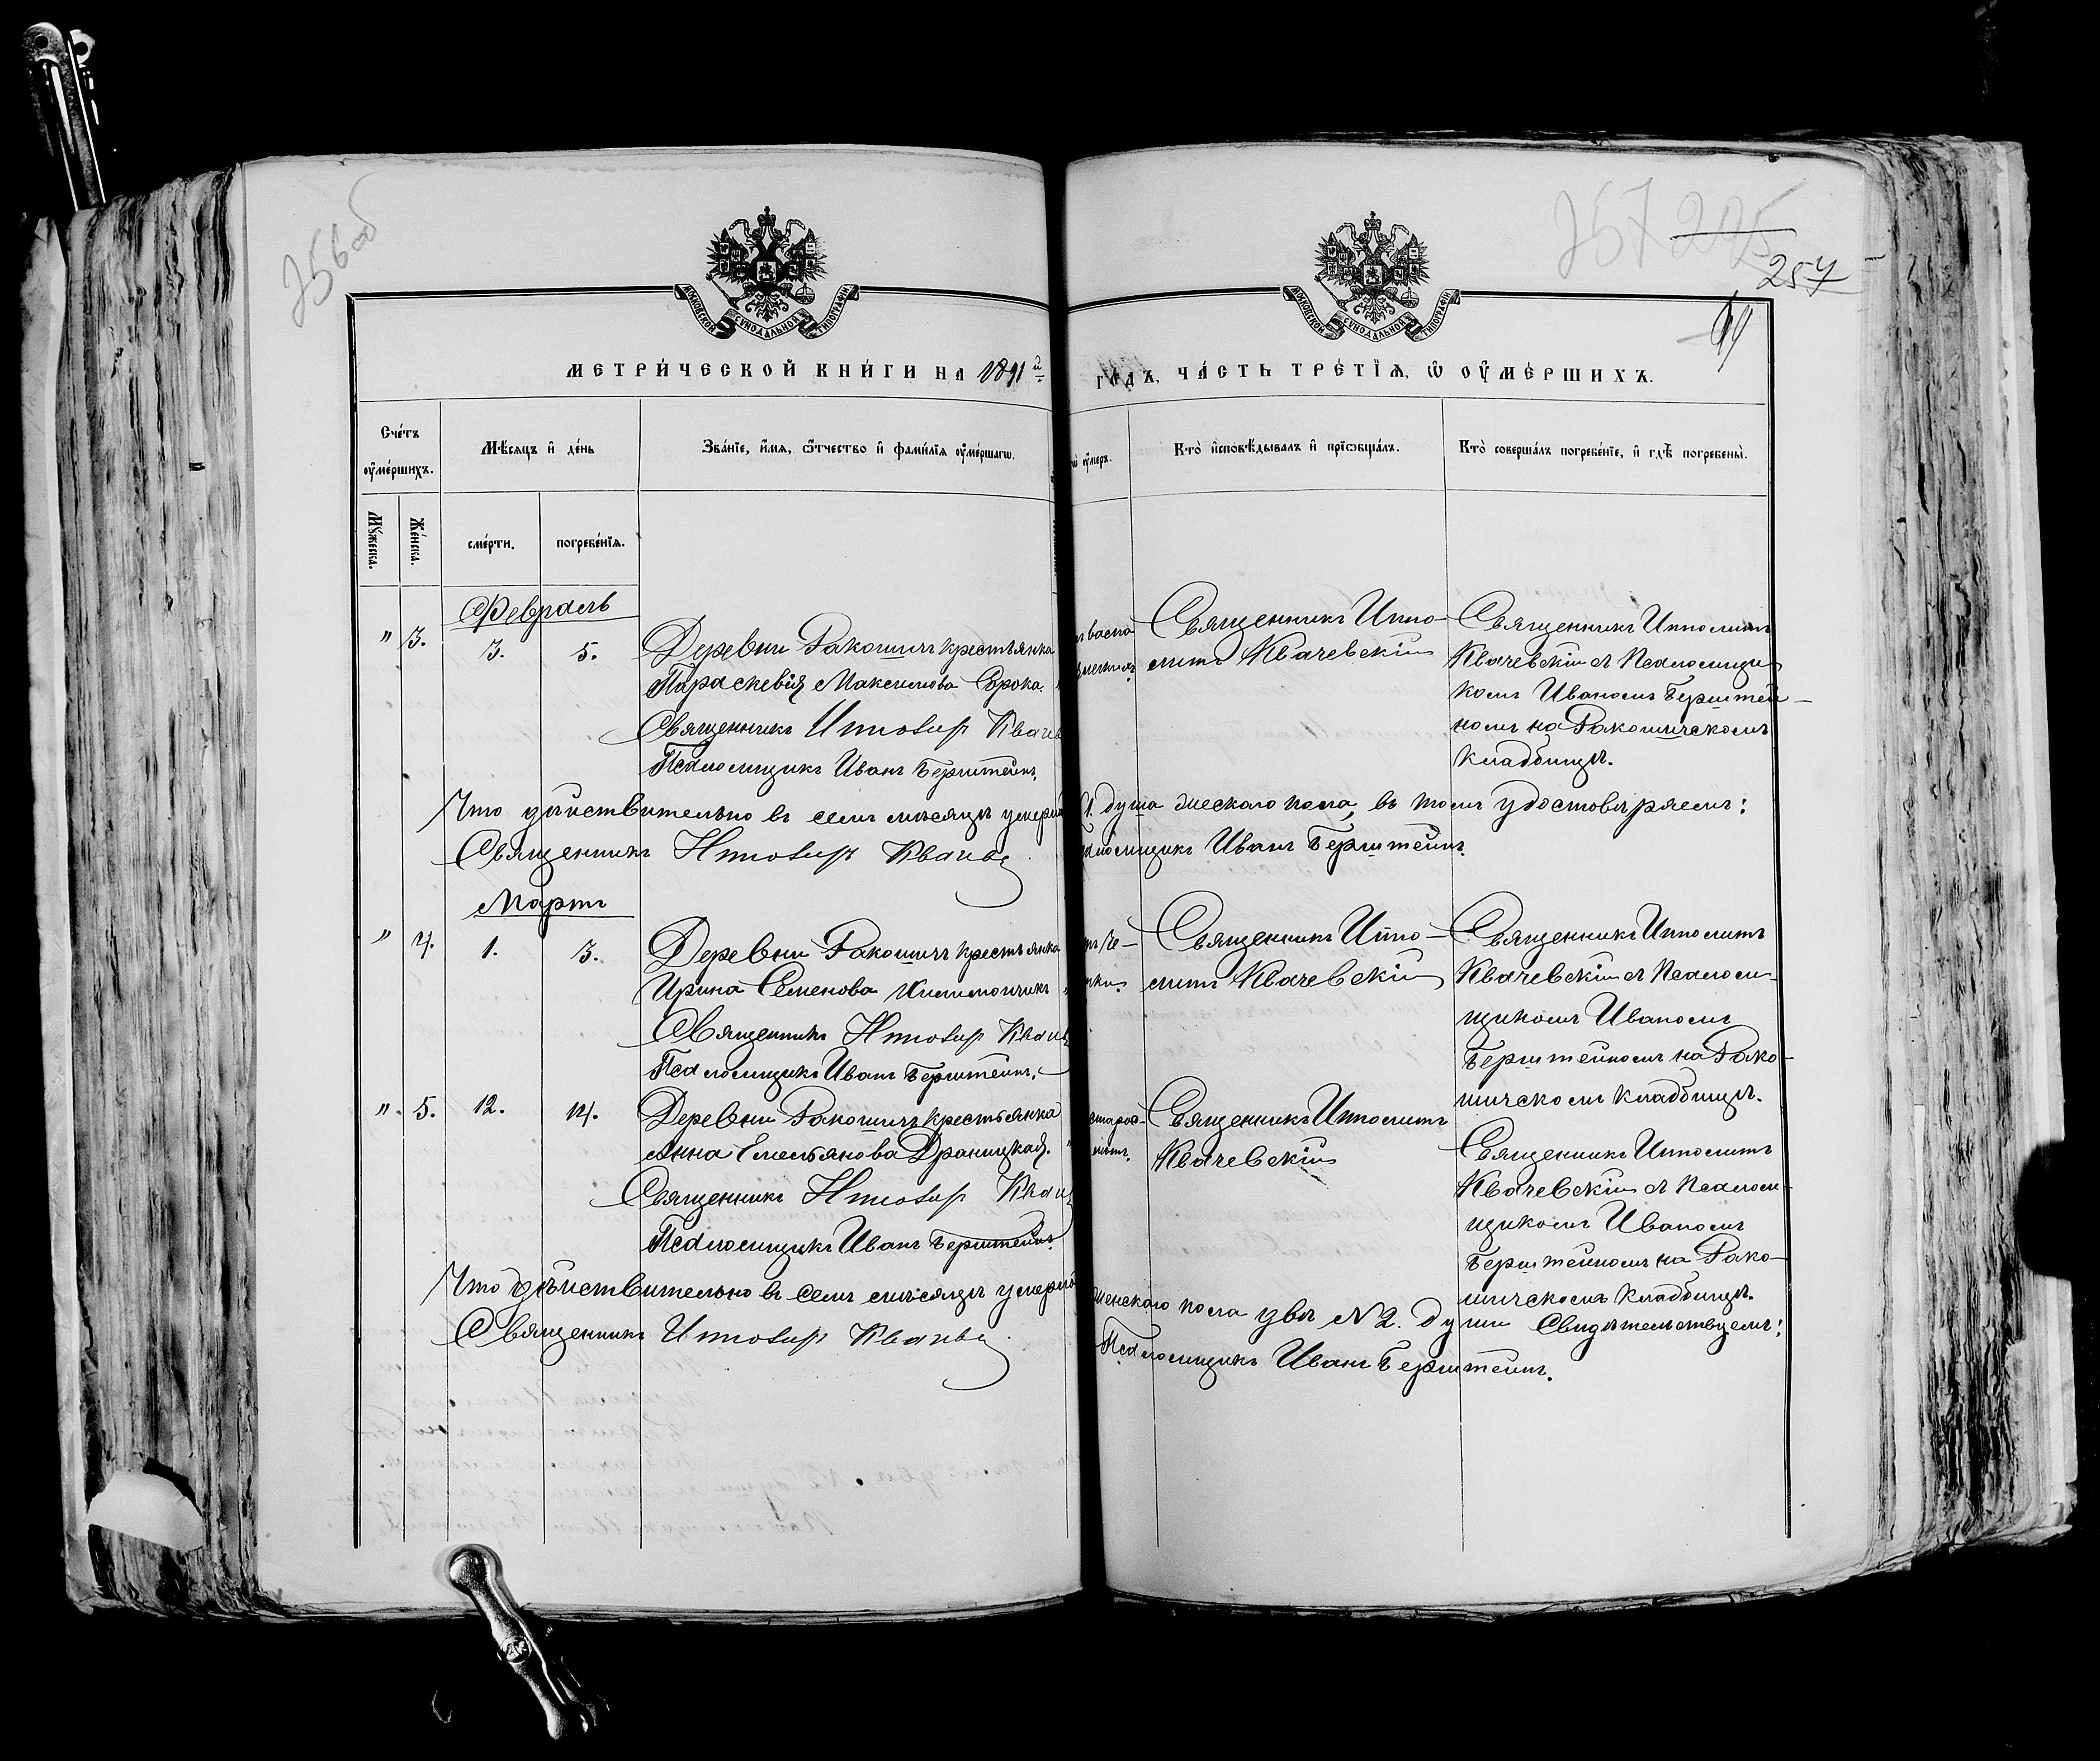 256 об
257 205
257
МОСКОВСКОЙ СѴНОДАЛЬНОЙ ТИПОГРАФІИ
МОСКОВСКОЙ СѴНОДАЛЬНОЙ ТИПОГРАФІИ
МЕТРИ́ЧЕСКОЙ КНИ́ГИ НА 1891й
ГО́ДЪ, ЧА́СТЬ ТРЕ́ТЇѦ, Ѽ ОУ҆МЕ́РШИХЪ.
Сче́тъ оу҆ме́ршихъ.
Мѣ́сѧцъ и҆ де́нь
Зва́нїе, и҆́мѧ, ѻ҆́тчество и҆ фами́лїѧ оу҆ме́ршагѡ.
оу҆́меръ.
Кто̀ и҆сповѣ́дывалъ и҆ прїѡбща́лъ.
Кто̀ соверша́лъ погребе́нїе, и҆ гдѣ̀ погребены̀.
Мꙋ́жеска.
Же́нска.
сме́рти.
погребе́нїѧ.
Февраль
" 3. 3. 5. Деревни Ракошичъ крестьянка
Параскевія Максимова Сорока.
Священникъ
Псаломщикъ Иванъ Берштейнъ.
Священникъ Иппо-
литъ Квачевскій
Священникъ Ипполитъ
Квачевскій съ Псаломщи
комъ Иваномъ Берштей-
номъ на Ракошичскомъ
кладбищѣ.
Что дѣйствительно въ семъ мѣсяцѣ 1. душа женскаго пола, въ томъ удостовѣряемъ:
Священникъ Псаломщикъ Иванъ Берштейнъ.
Мартъ
" 4. 1. 3. Деревни Ракошичъ крестьянка
Ирина Семенова
Священникъ
Псаломщикъ Иванъ Берштейнъ.
Священникъ Иппо-
литъ Квачевскій
Священникъ Ипполитъ
Квачевскій съ Псалом-
щикомъ Иваномъ
Берштейномъ на Рако-
шичскомъ кладбищѣ.
" 5. 12. 14. Деревни Ракошичъ крестьянка
Анна Емельянова Драницкая.
Священникъ
Псаломщикъ Иванъ Берштейнъ.
старос-
Священникъ Ипполитъ
Квачевскій
Священникъ Ипполитъ
Квачевскій съ Псалом-
щикомъ Иваномъ
Берштейномъ на Рако-
шичскомъ кладбищѣ.
Что дѣйствительно въ семъ мѣсяцѣ женскаго пола двѣ №2. души свидѣтельствуемъ:
Священникъ Псаломщикъ Иванъ Берштейнъ.